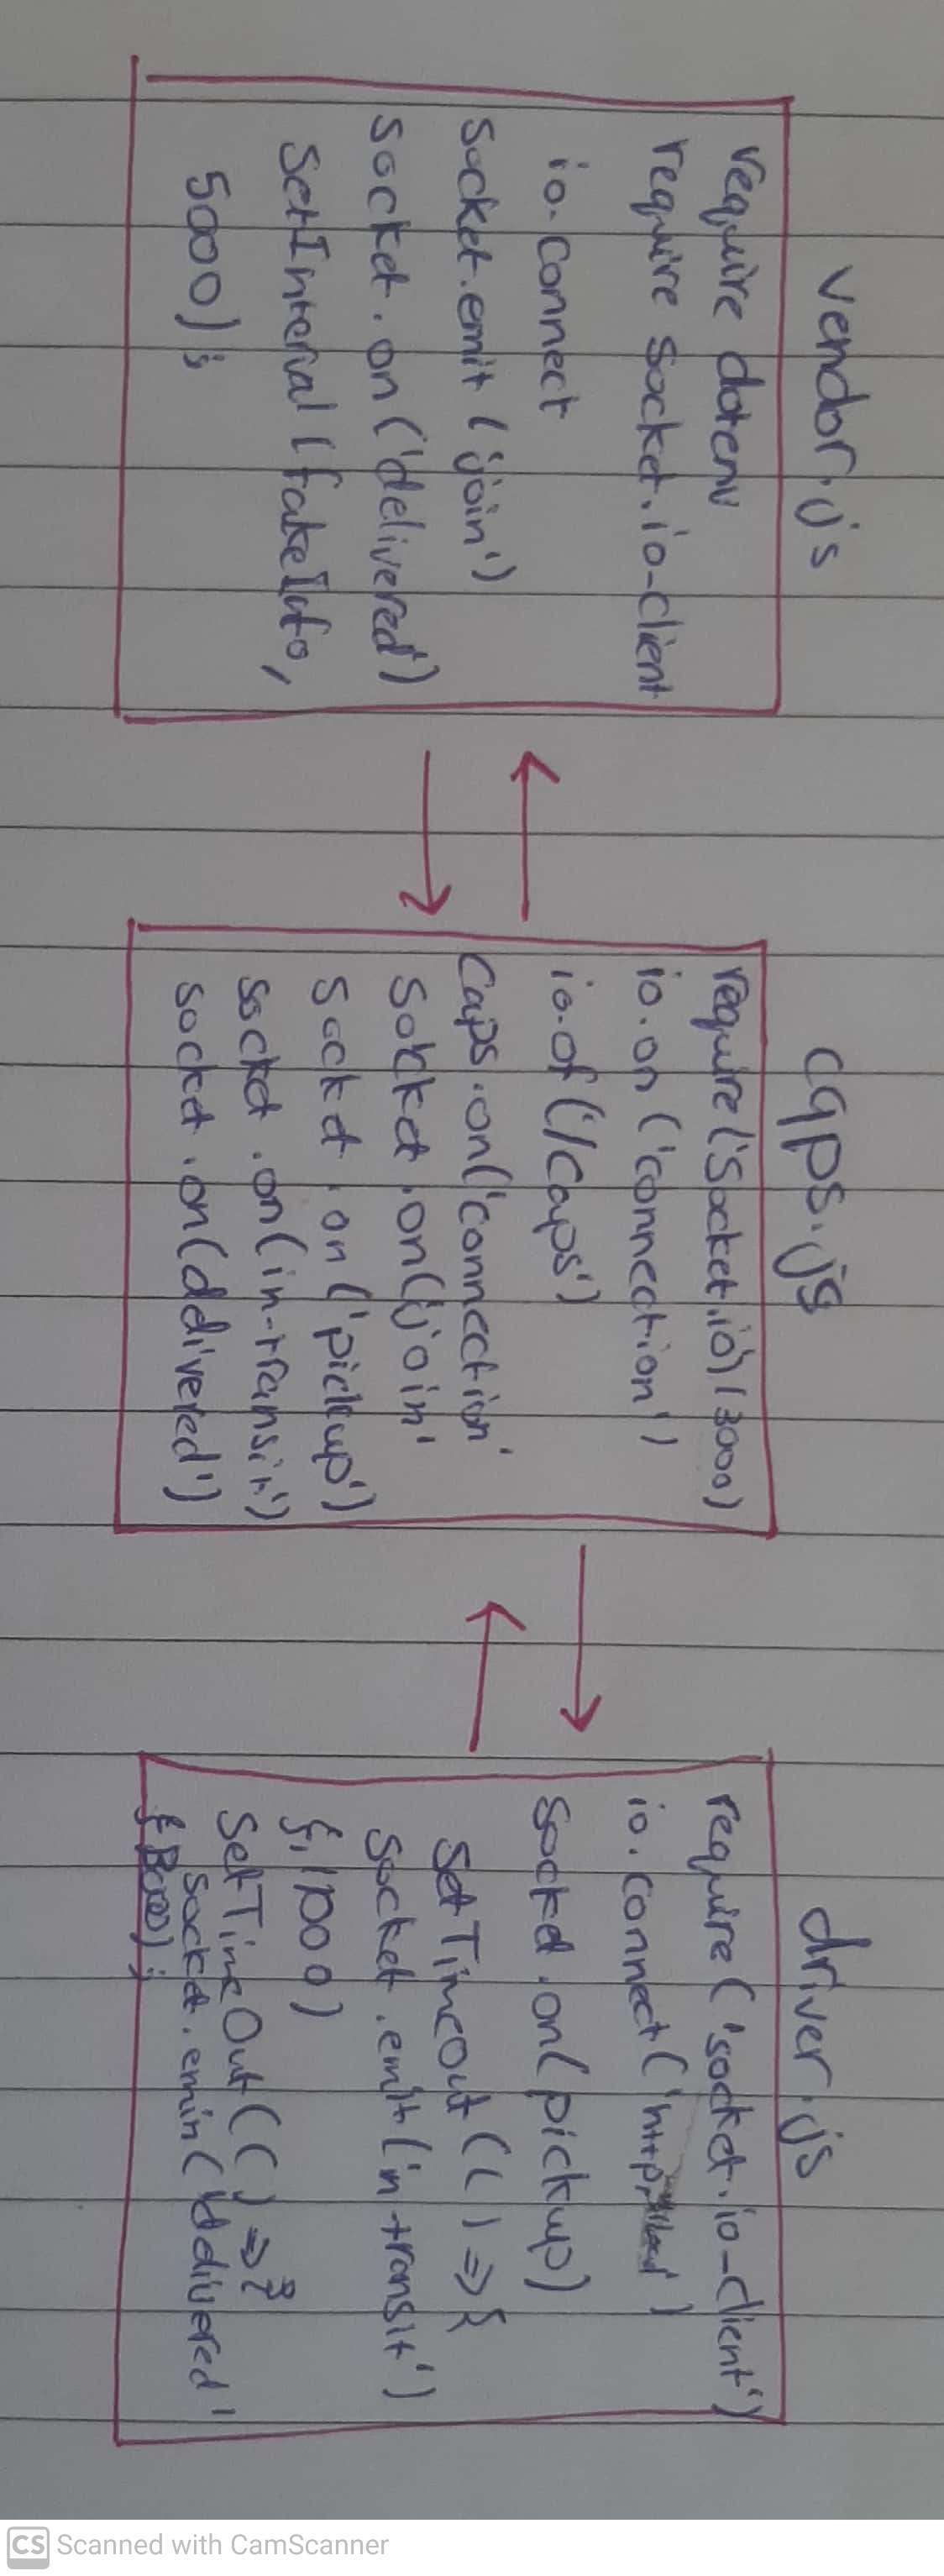 vendor.js
require dotenv
require socket.io-client
io.connect
socket.emit ('join')
socket.on ('delivered')
SetInterval (fakeInfo,
5000);
caps.js
require('socket.io')(3000)
io.on ('connection')
io.of ('/caps')
Caps.on('connection'
socket.on('join'
socket.on ('pickup')
socket.on(in-transit')
socket.on(delivered')
driver.js
require ('socket.io-client')
io.connect ('http
socket.on(pickup)
SetTimeOut (() => {
socket.emit (in transit')
{,1000)
SetTimeOut (() => {
socket.emin ('delivered'
CS Scanned with CamScanner